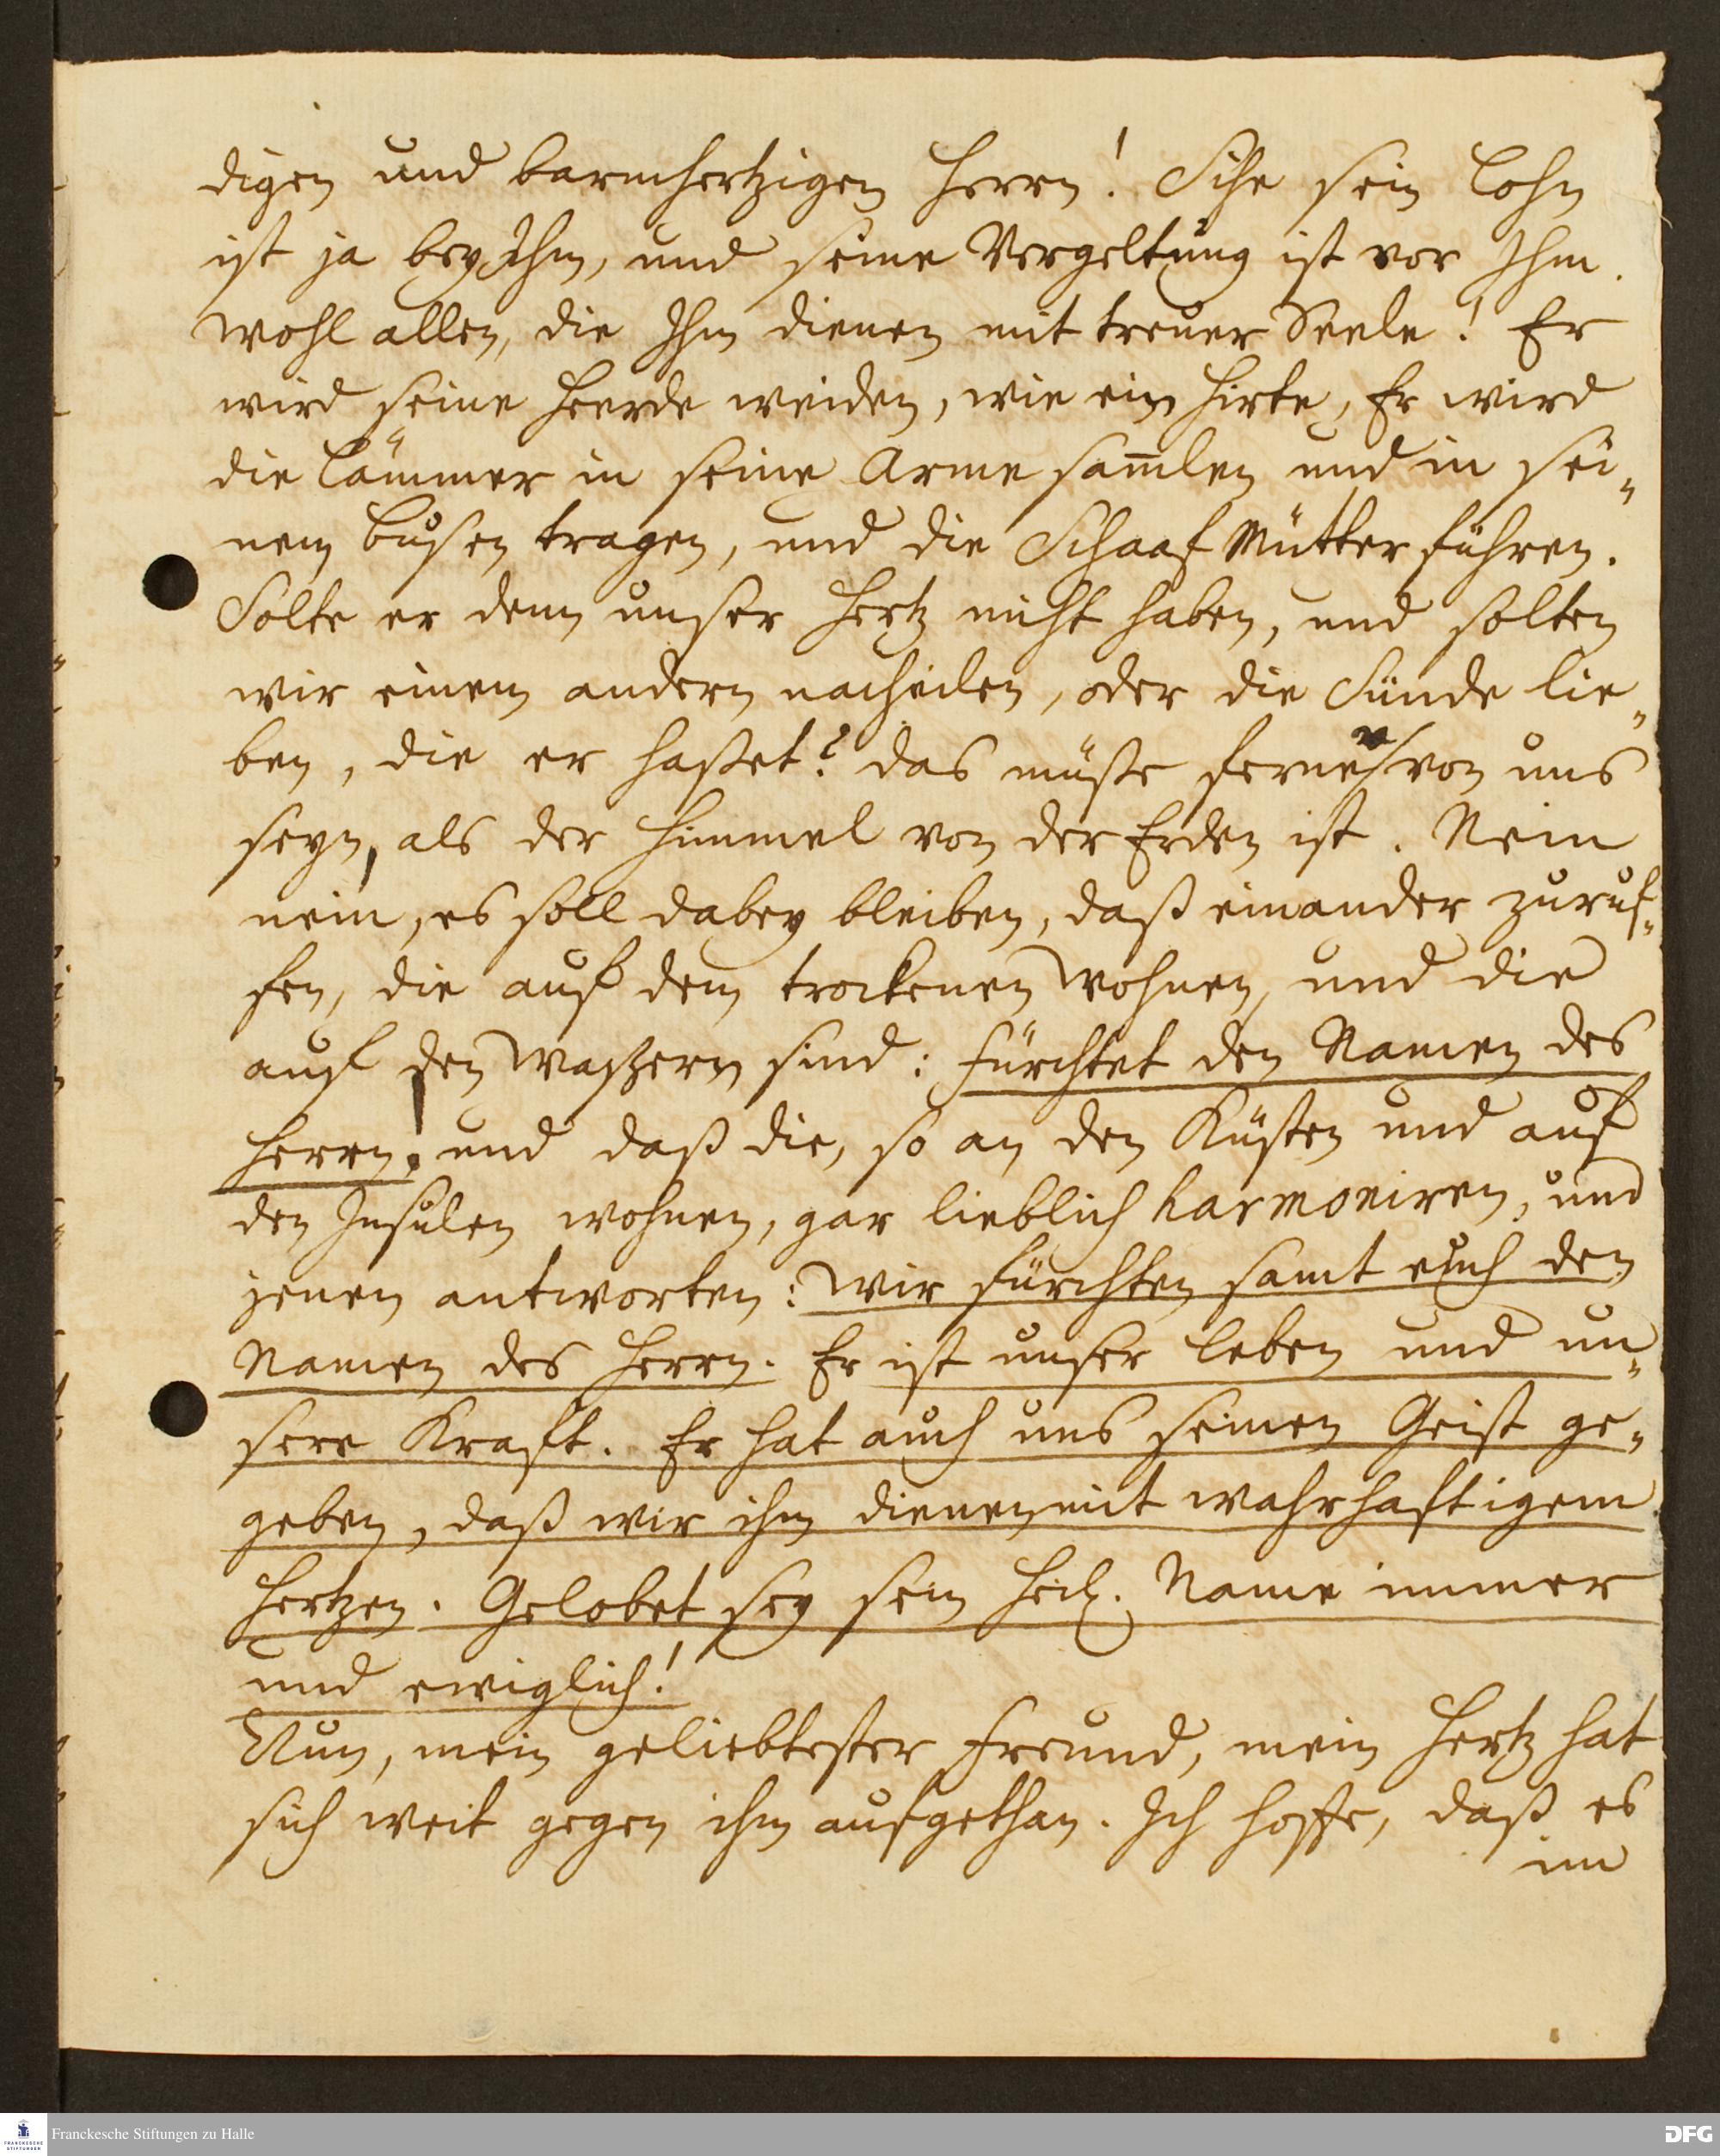 digen und barmhertzigen Herrn! Sihe sein Lohn
ist ja bey Ihm, und seine Vergeltung ist vor Ihm.
wohl allen, die Ihm dienen mit treuer Seele! Er
wird seine Heerde weiden, wie ein Hirte, Er wird
die Lämmer in seine Arme sam̅len und in sei„
nem busen tragen, und die Schaaf Mütter führen.
Solte er denn unser Hertz nicht haben, und solten
wir einem andern nacheilen, oder die Sünde lie„
ben, die er haßet? das müste ferner von uns
seyn, als der Himmel von der Erden ist. Nein
nein, es soll dabey bleiben, daß einander zuruf„
fen, die auf dem trockenen wohnen, und die
auf den Waßern sind: fürchtet den Namen des
Herrn! und daß die, so an den Küsten und auf
den Insulen wohnen, gar lieblich harmoniren, und
jenen antworten: Wir fürchten samt euch den
Namen des Herrn. Er ist unser Leben und un„
sere Kraft. Er hat auch uns seinen Geist ge„
geben, daß wir ihm dienen mit wahrhaftigem
Hertzen. Gelobet sey sein Heil. Name immer
und ewiglich!
Nun, mein geliebtester Freund, mein Hertz hat
sich weit gegen ihm aufgethan. Ich hoffe, daß es
im
Franckesche Stiftungen zu Halle
FRANCKESCHE STIFTUNGEN
DFG